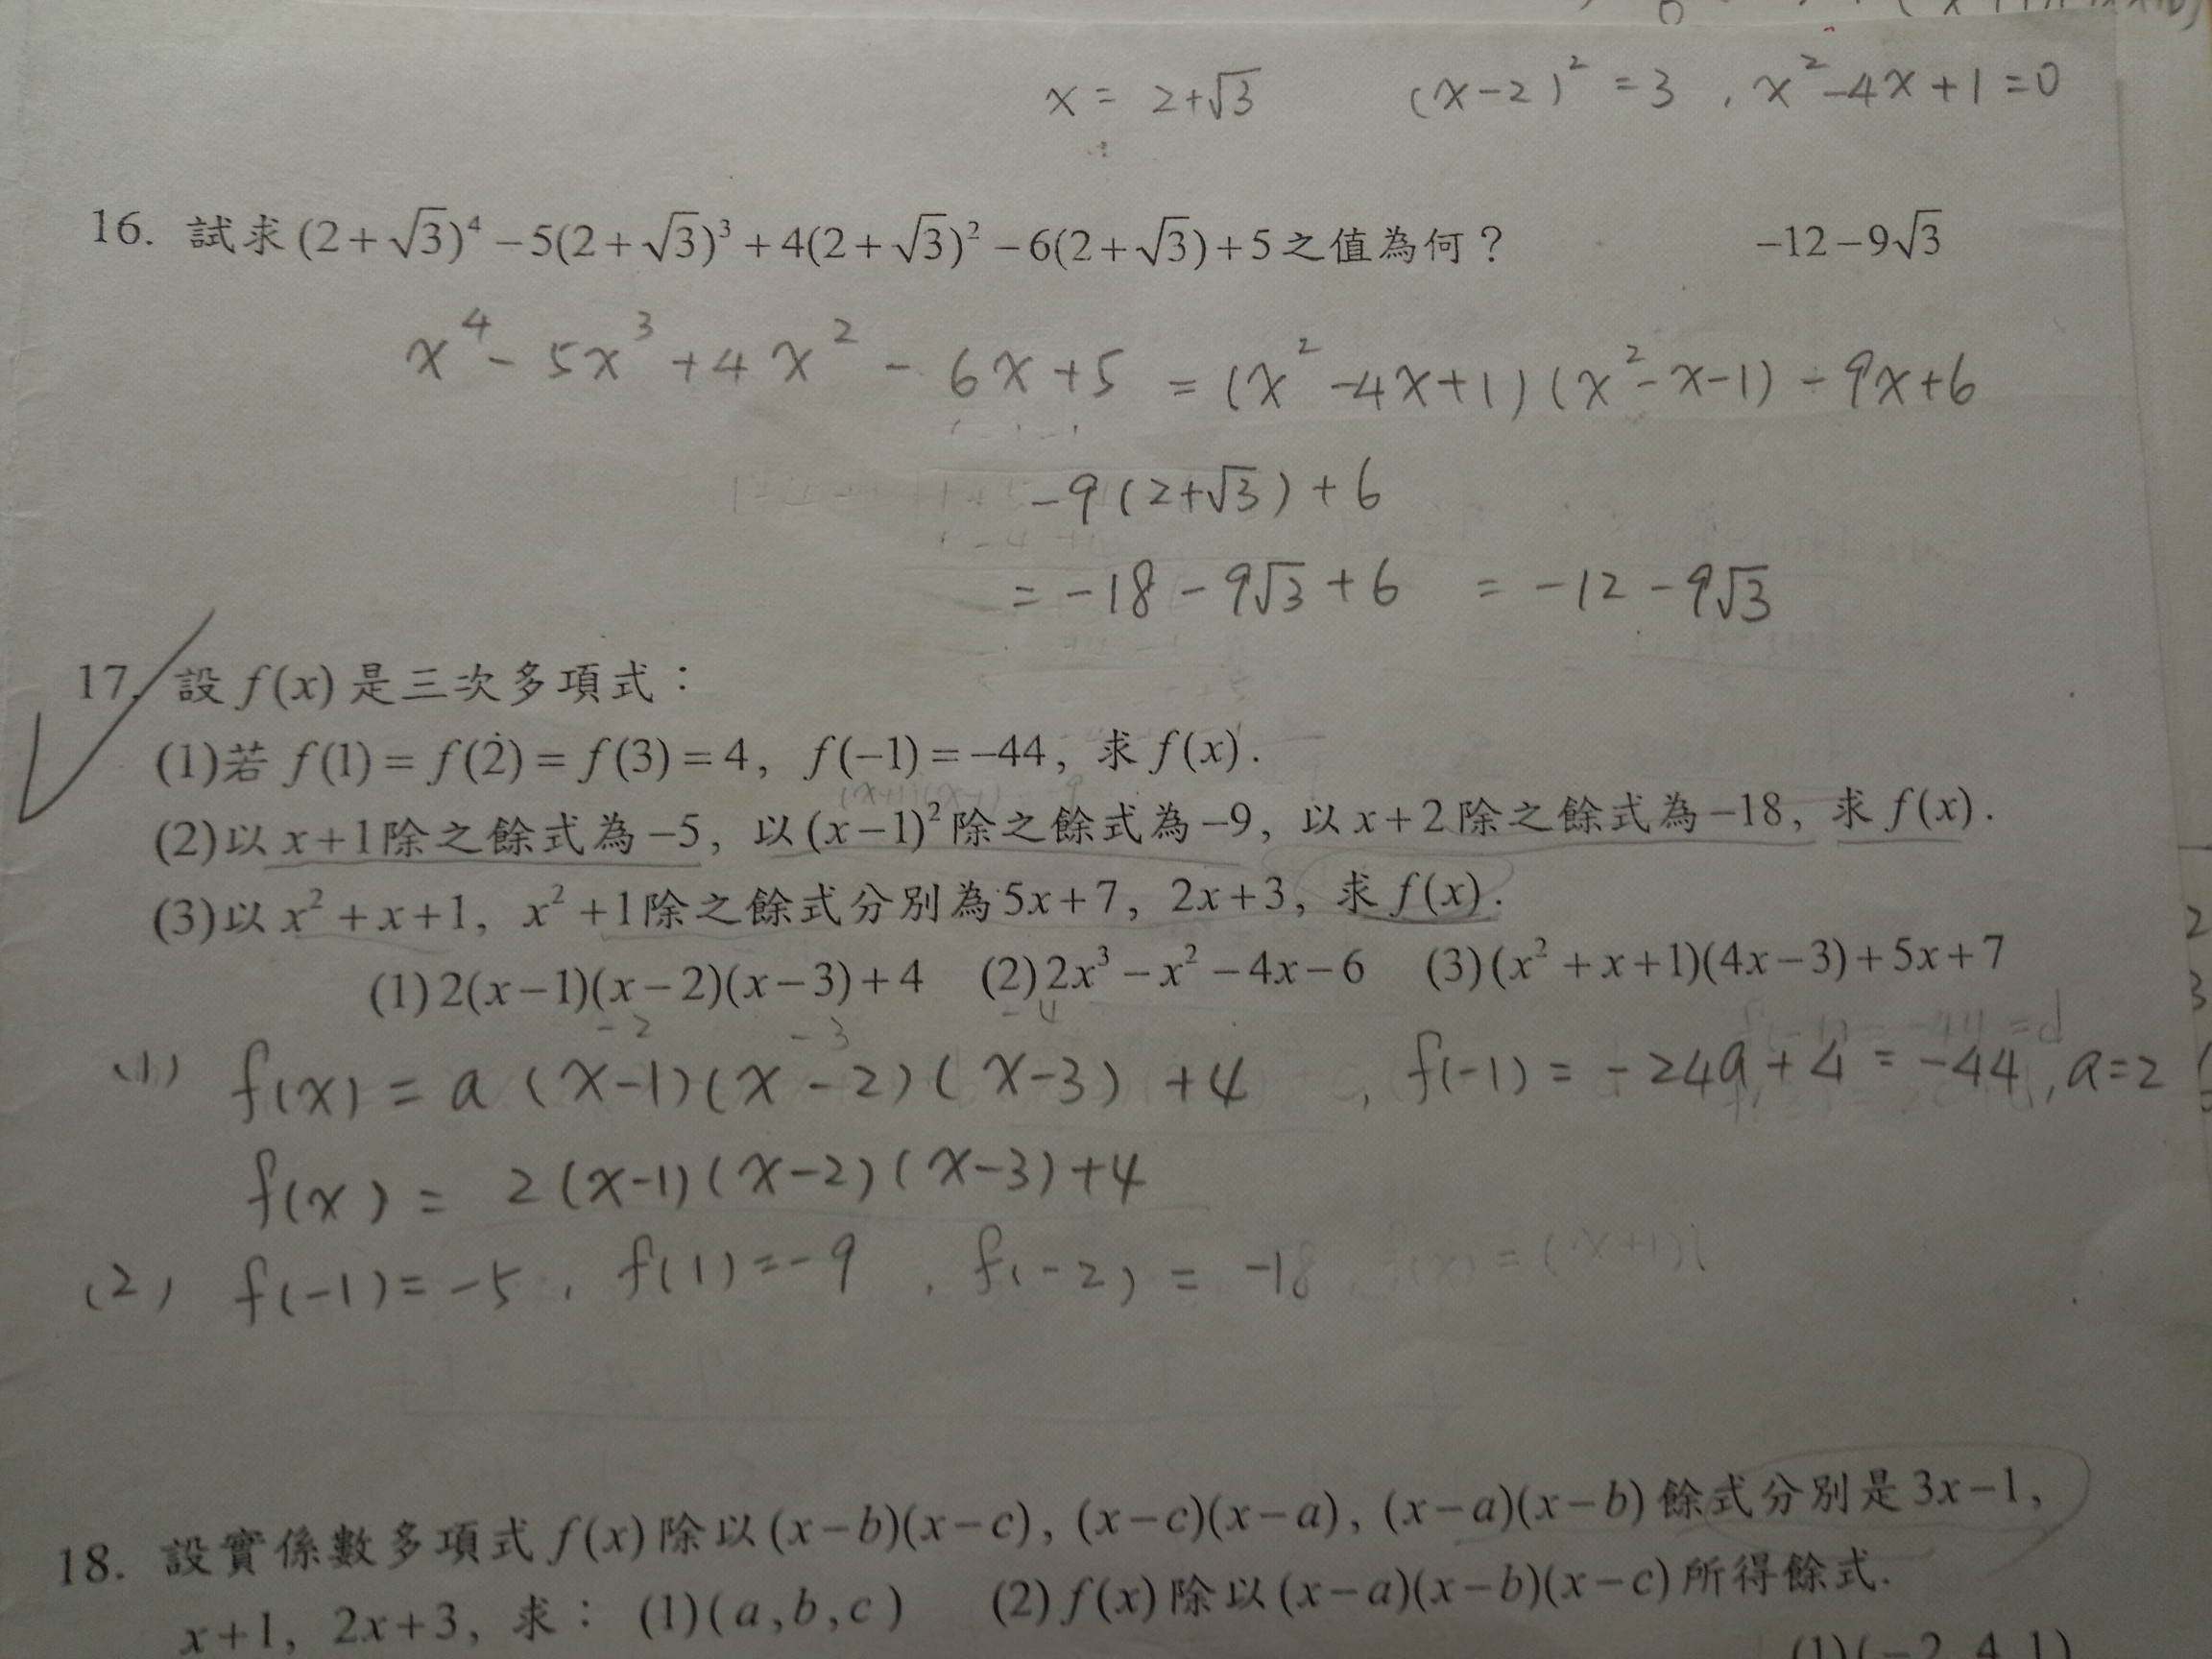 x = 2+√3 (x-2)² = 3 , x²-4x+1=0
16. 試求(2+√3)⁴-5(2+√3)³+4(2+√3)²-6(2+√3)+5之值為何? -12-9√3
x⁴- 5x³+4x² - 6x+5 = (x²-4x+1)(x²-x-1) -9x+6
-9(2+√3)+6
= -18 - 9√3 + 6 = -12 - 9√3
17. 設f(x)是三次多項式:
(1)若 f(1)=f(2)=f(3)=4, f(-1)=-44, 求f(x).
(2)以x+1除之餘式為-5, 以(x-1)²除之餘式為-9, 以x+2除之餘式為-18, 求f(x).
(3)以x²+x+1, x²+1除之餘式分別為5x+7, 2x+3, 求f(x).
(1)2(x-1)(x-2)(x-3)+4 (2)2x³-x²-4x-6 (3)(x²+x+1)(4x-3)+5x+7
-2 -3 -4
(1) f(x) = a(x-1)(x-2)(x-3) +4 , f(-1) = -24a+4 = -44, a=2
f(x) = 2(x-1)(x-2)(x-3)+4
(2) f(-1)=-5, f(1)=-9, f(-2) = -18
18. 設實係數多項式f(x)除以(x-b)(x-c), (x-c)(x-a), (x-a)(x-b)餘式分別是3x-1,
x+1, 2x+3, 求: (1)(a,b,c) (2)f(x)除以(x-a)(x-b)(x-c)所得餘式.
(1)(-2,4,1)